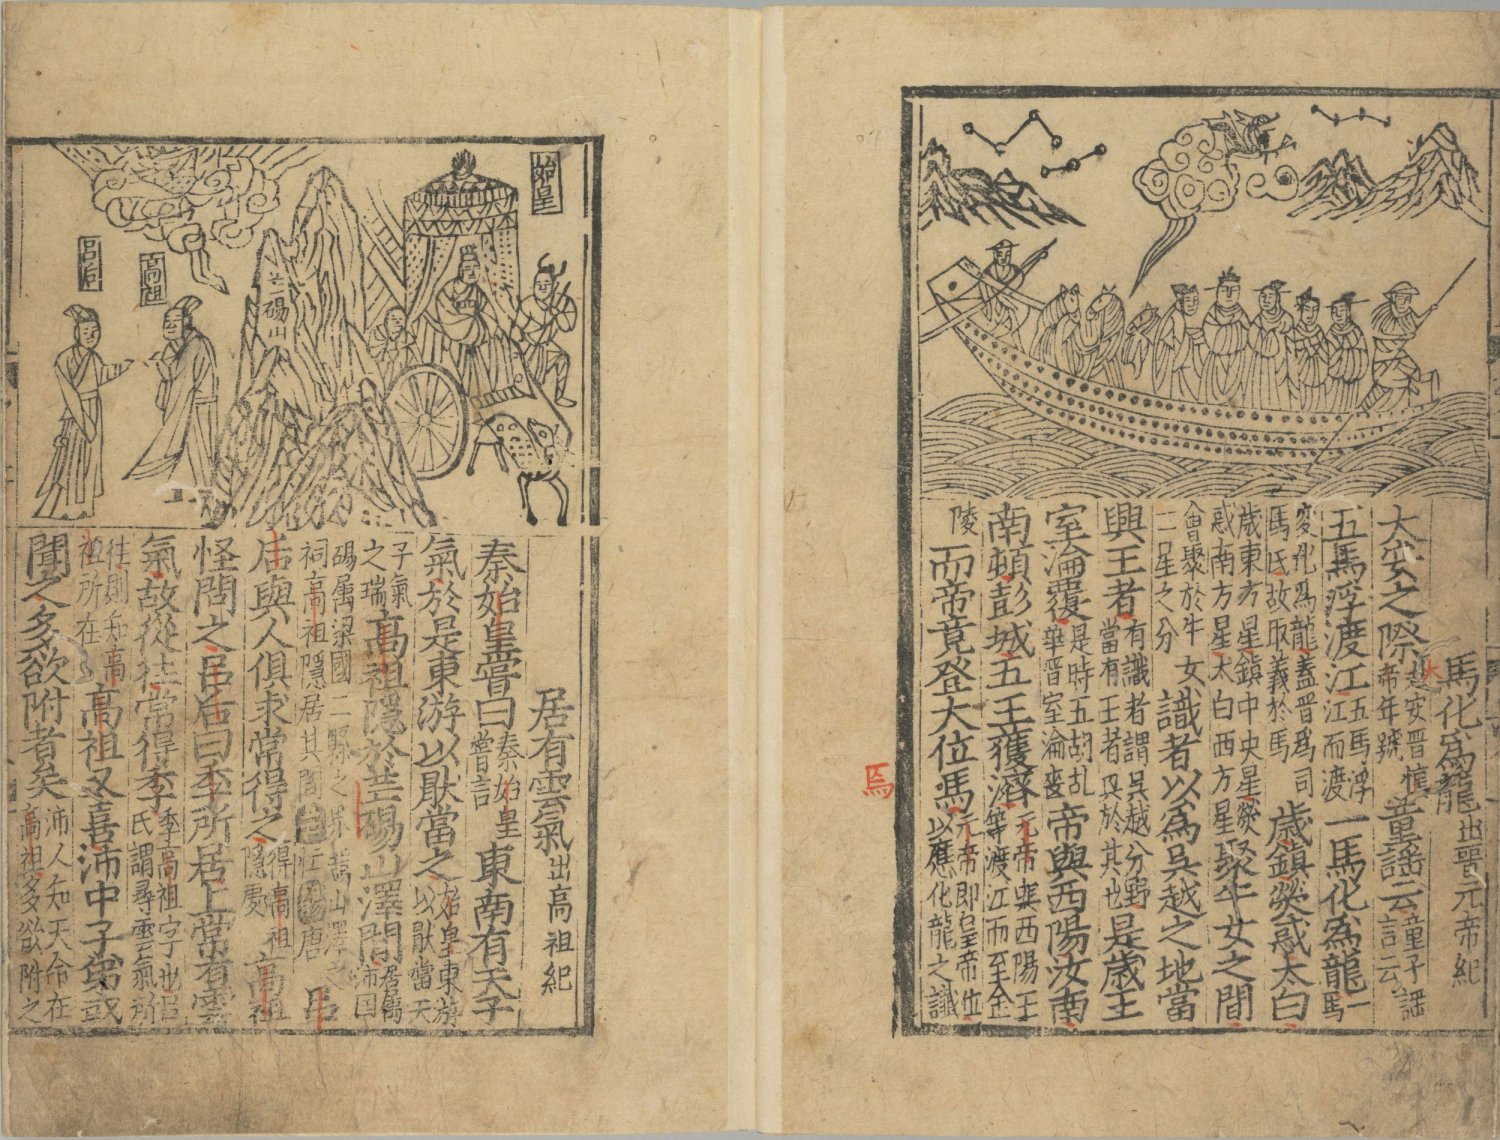 馬化為龍 出晋元帝紀
大安之際 安晋惠帝年號 童謡云 童子謡言云
五馬浮渡江 五馬浮江而渡 一馬化為龍 一馬
變化為龍蓋晋為司馬氏故取義於馬 歲鎮熒惑太白
歲東方星鎮中央星熒惑南方星太白西方星 聚牛女之間
會聚於牛女二星之分 識者以為吳越之地當
興王者 有識者謂吳越分野當有王者興於其也 是歲王
室淪覆 是時五胡乱華晋室淪変 帝與西陽汝南
南頓彭城五王獲濟 元帝與西陽王等渡江而至金
陵 而帝竟登大位焉 元帝即皇帝位以應化龍之讖
焉
始皇
芒碭山
高祖
呂后
居有雲氣 出高祖紀
秦始皇嘗曰 秦始皇嘗言 東南有天子
氣於是東游以厭當之 始皇東游以厭當天
子氣之瑞 高祖隱於芒碭山澤間 沛国
碭属梁國二縣之界 山澤 祠高祖隱居其間 呂
后與人俱求常得之 得高祖隱處 高祖
怪問之呂后曰季所居上常有雲
氣故從往常得季 季高祖字也呂氏謂尋雲氣所
往則知高祖所在 高祖又喜沛中子弟或
聞之多欲附者矣 沛人知天命在高祖多欲附之